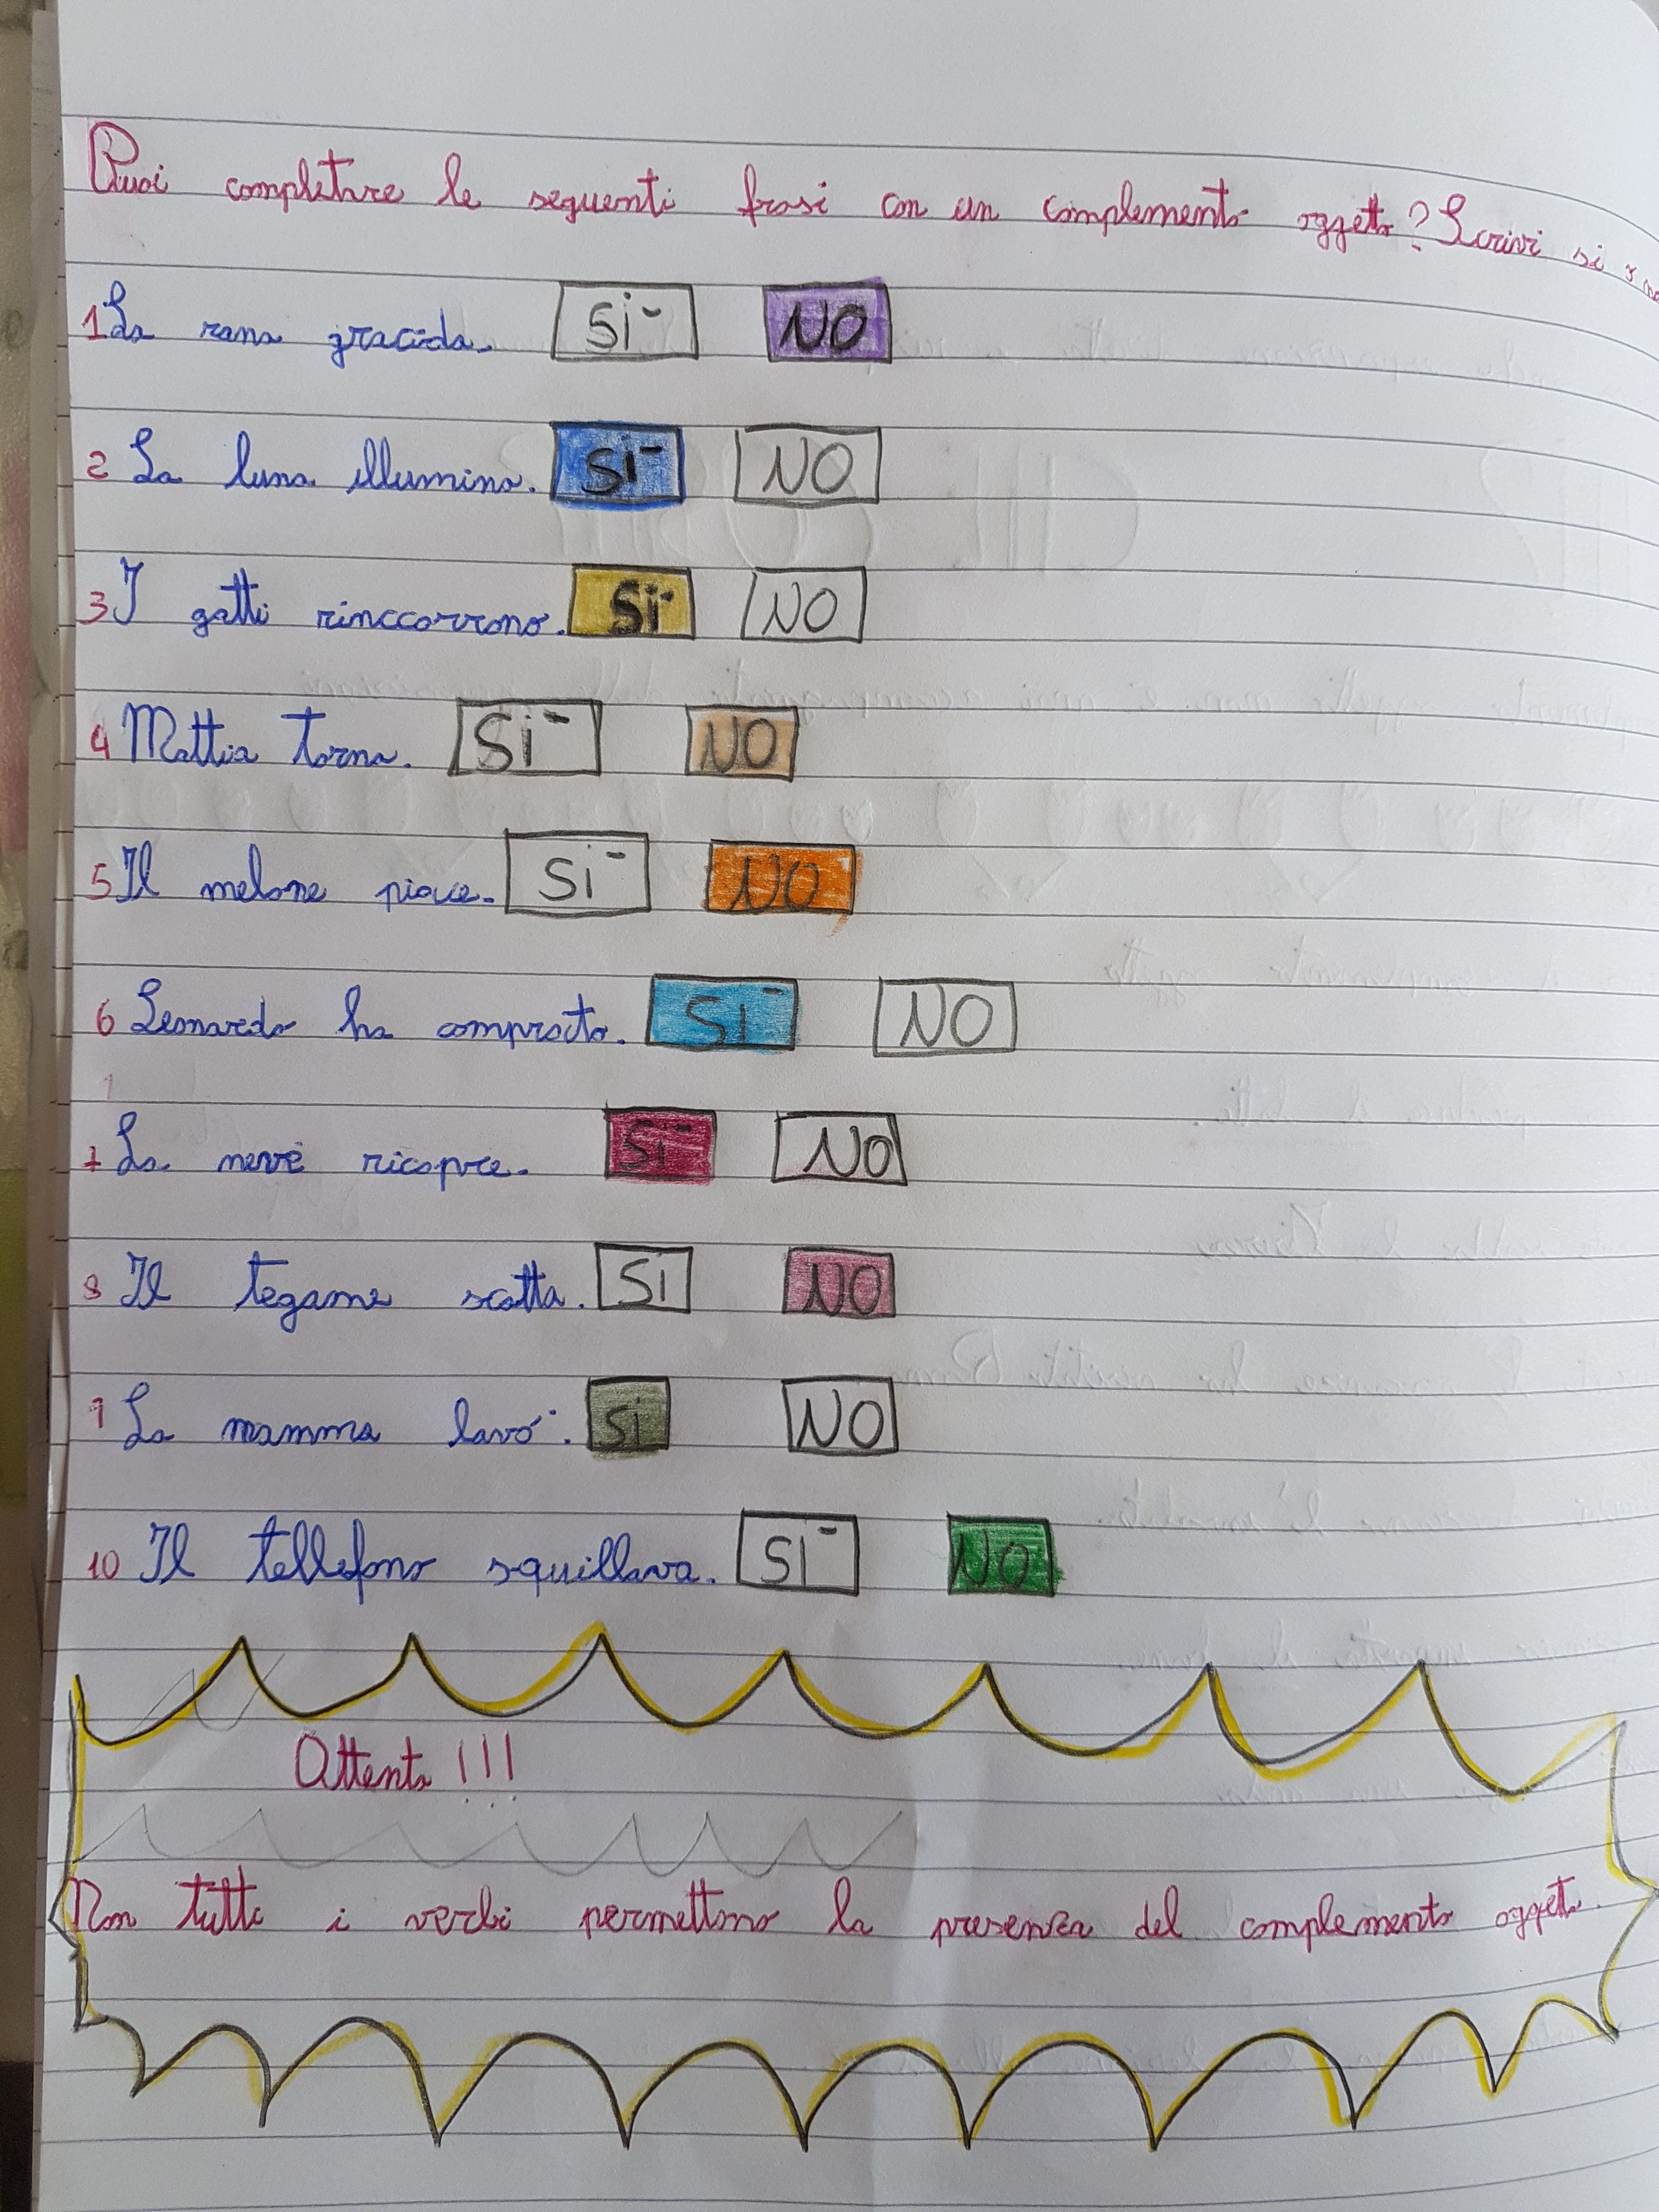 Puoi completare le seguenti frasi con un complemento oggetto? Scrivi si o no
1 La rana gracida. Si NO
2 La luna illumina. Si NO
3 I gatti rinccorrono. Si NO
4 Mattia torna. Si NO
5 Il melone piace. Si NO
6 Leonardo ha comprato. Si NO
7 La neve ricopre. Si NO
8 Il tegame scotta. Si NO
9 La mamma lavò. Si NO
10 Il tellefono squillava. Si NO
Attento!!!
Non tutti i verbi permettono la presenza del complemento oggetto.